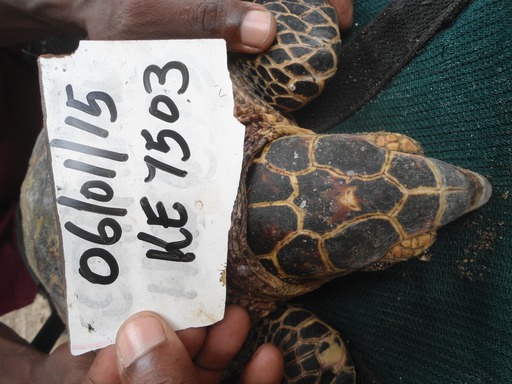 06/01/15
KE 7503